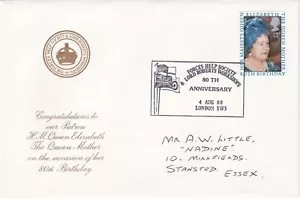 Congratulations to
our Patron
H.M. Queen Elizabeth
The Queen Mother
on the occasion of her
80th Birthday
FORCES HELP SOCIETY
& LORD ROBERTS WORKSHOPS
80 TH
ANNIVERSARY
4 AUG 80
LONDON SW3
HER MAJESTY QUEEN ELIZABETH
THE QUEEN MOTHER
80TH BIRTHDAY
MR A.W. LITTLE,
"NADINE"
10. MILLFIELDS.
STANSTED.
ESSEX.